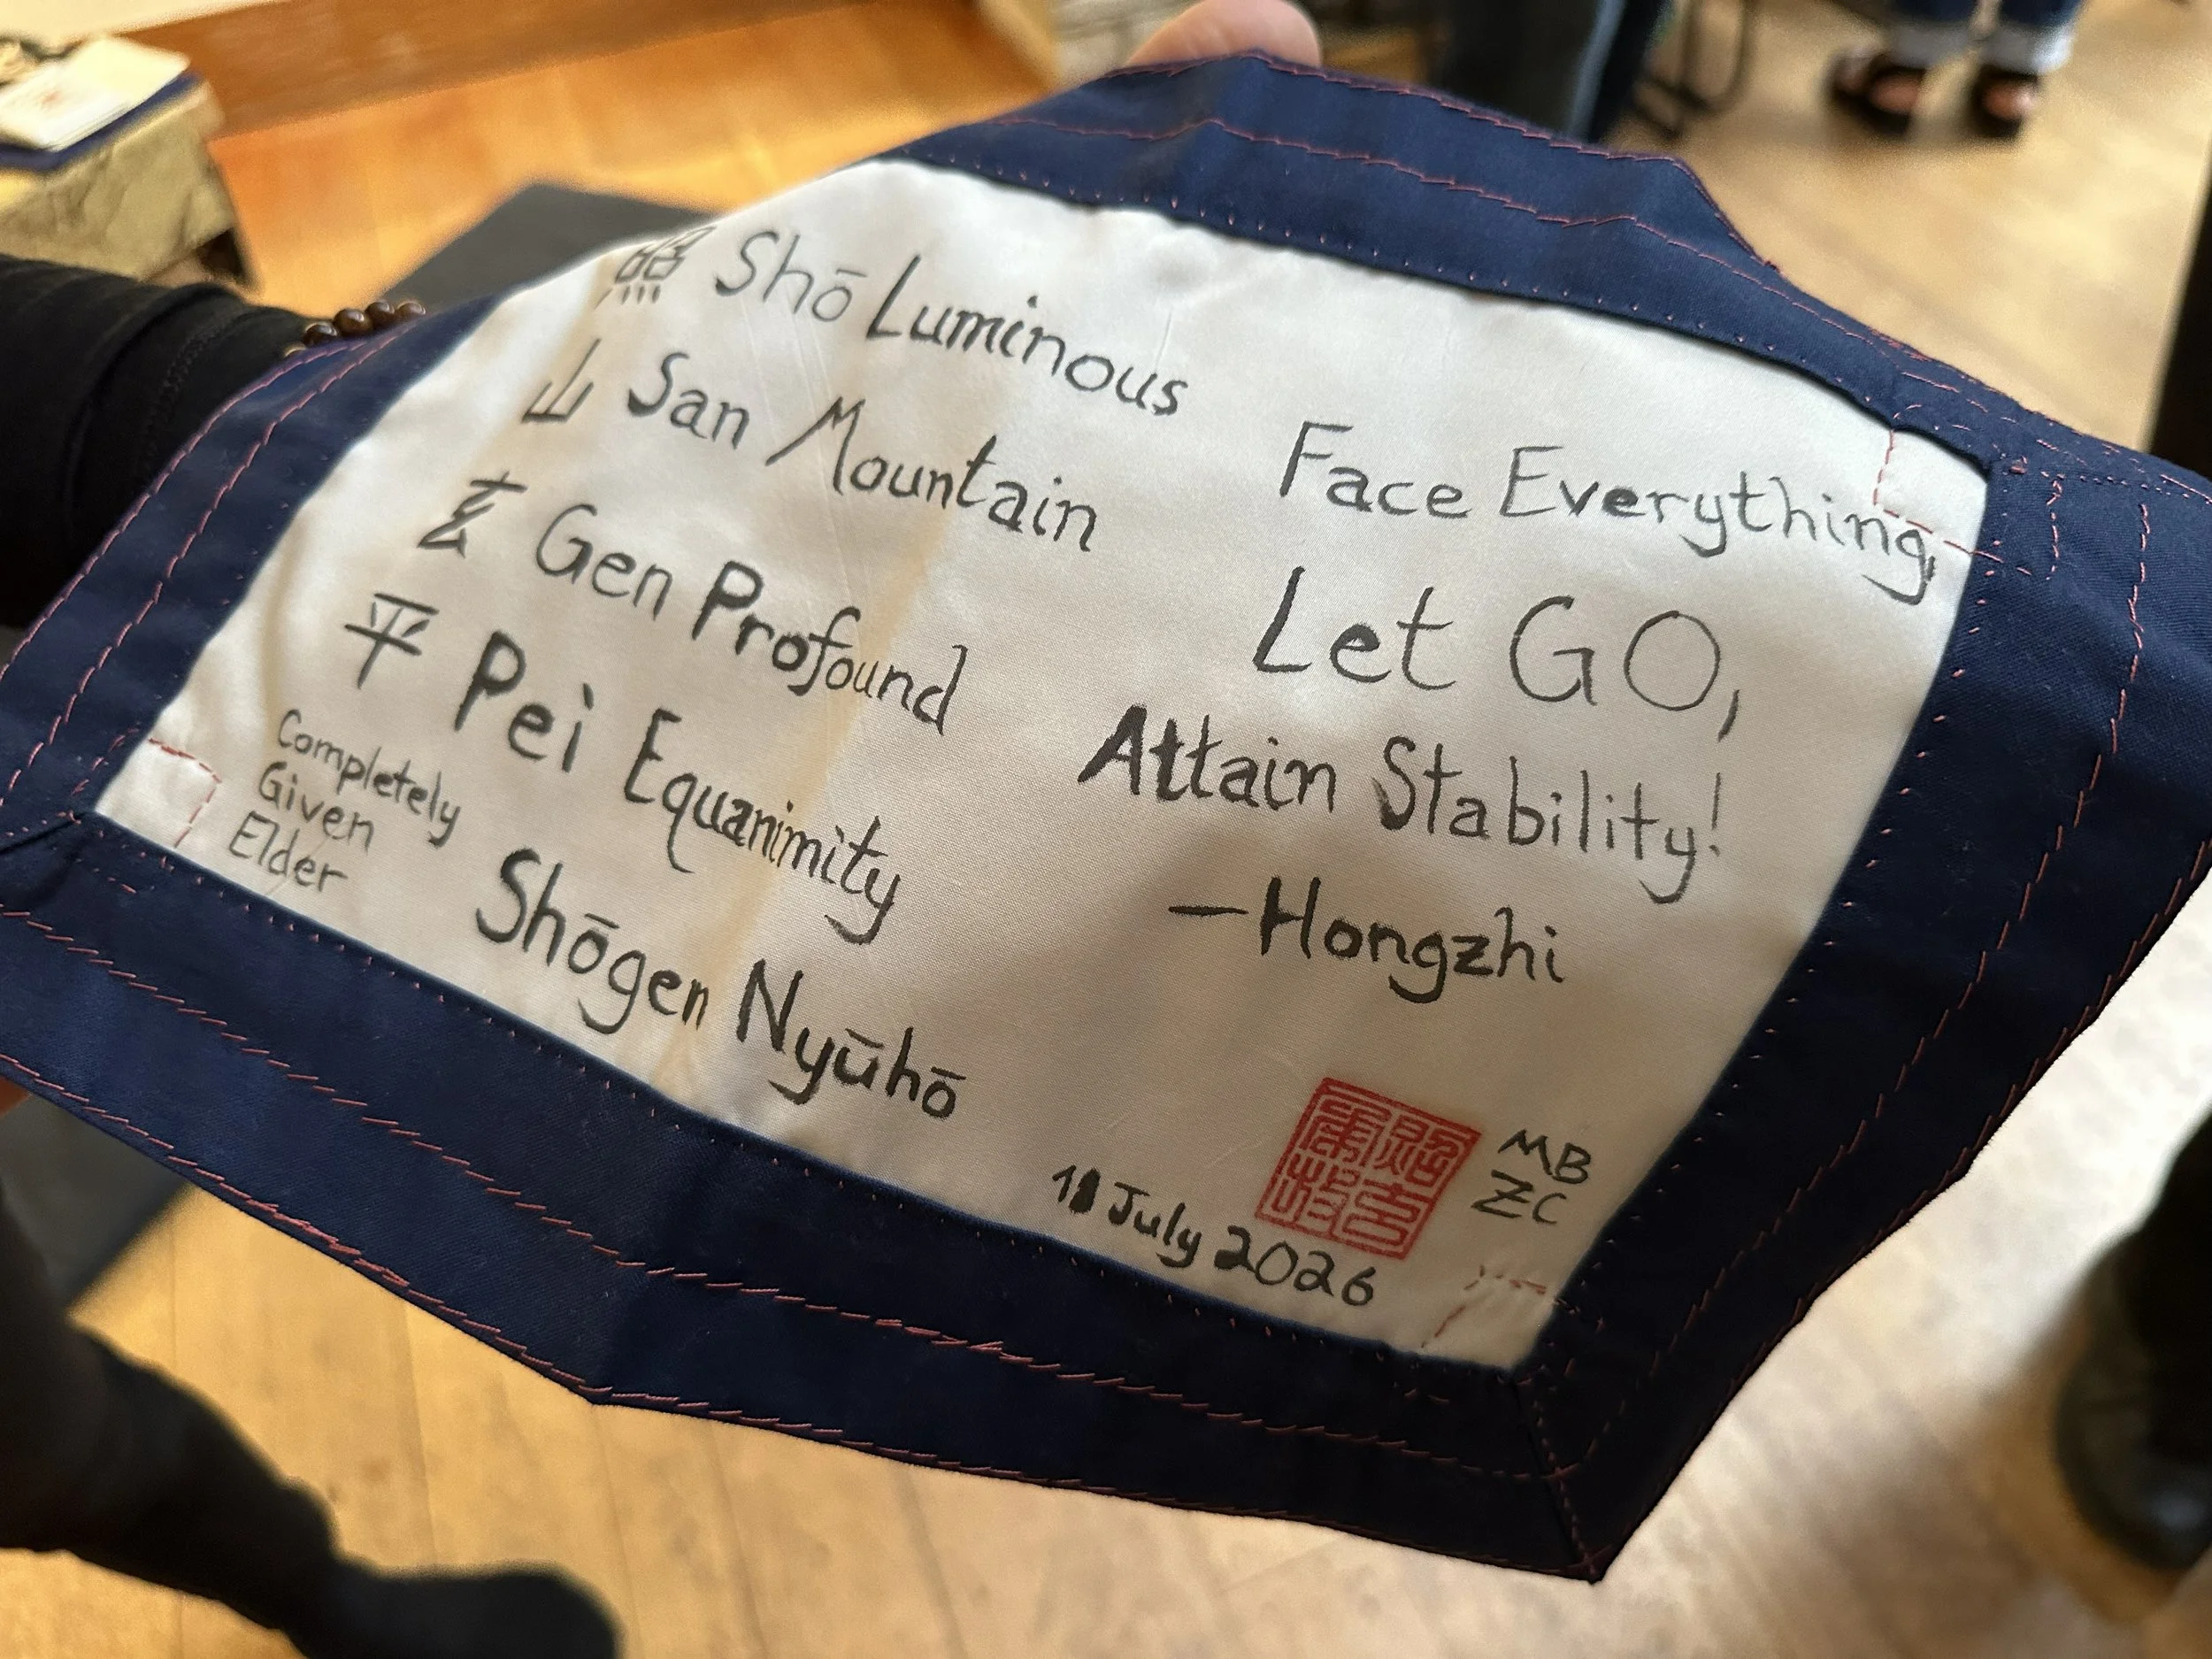 照 Shō Luminous
山 San Mountain
玄 Gen Profound
平 Pei Equanimity
Completely
Given
Elder
Shōgen Nyūhō
Face Everything,
Let GO,
Attain Stability!
—Hongzhi
MB
ZC
July 2026